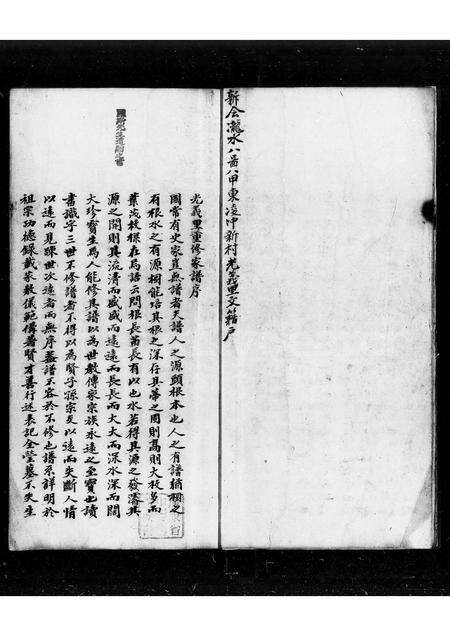 新会潮水八啚八甲東凌冲新村光義里文籍户
光義里重修家譜序
國嘗有史家豈無譜者夫譜人之源頭根本也人之有譜猶樹之
有根水之有源樹能培其根之深存其蒂之固則高則大枝多而
葉茂放樣在焉語云問根長苗長有以也水若得其源之發濤其
源之開則其流清而盛盛而遠遠而長長而大大而深水深而闊
大珍寶生焉人能修其譜以為世教傳家宗族永遠之至寶也讀
書識字三世不修譜者不得以為賢子孫宗支以遠而失斷人情
以遠而見踈世次遠者而無序盖譜不容於不修也譜系詳明於
祖宗功德錄載家教儀範傳著賢才善行述表記全塋墓不失生